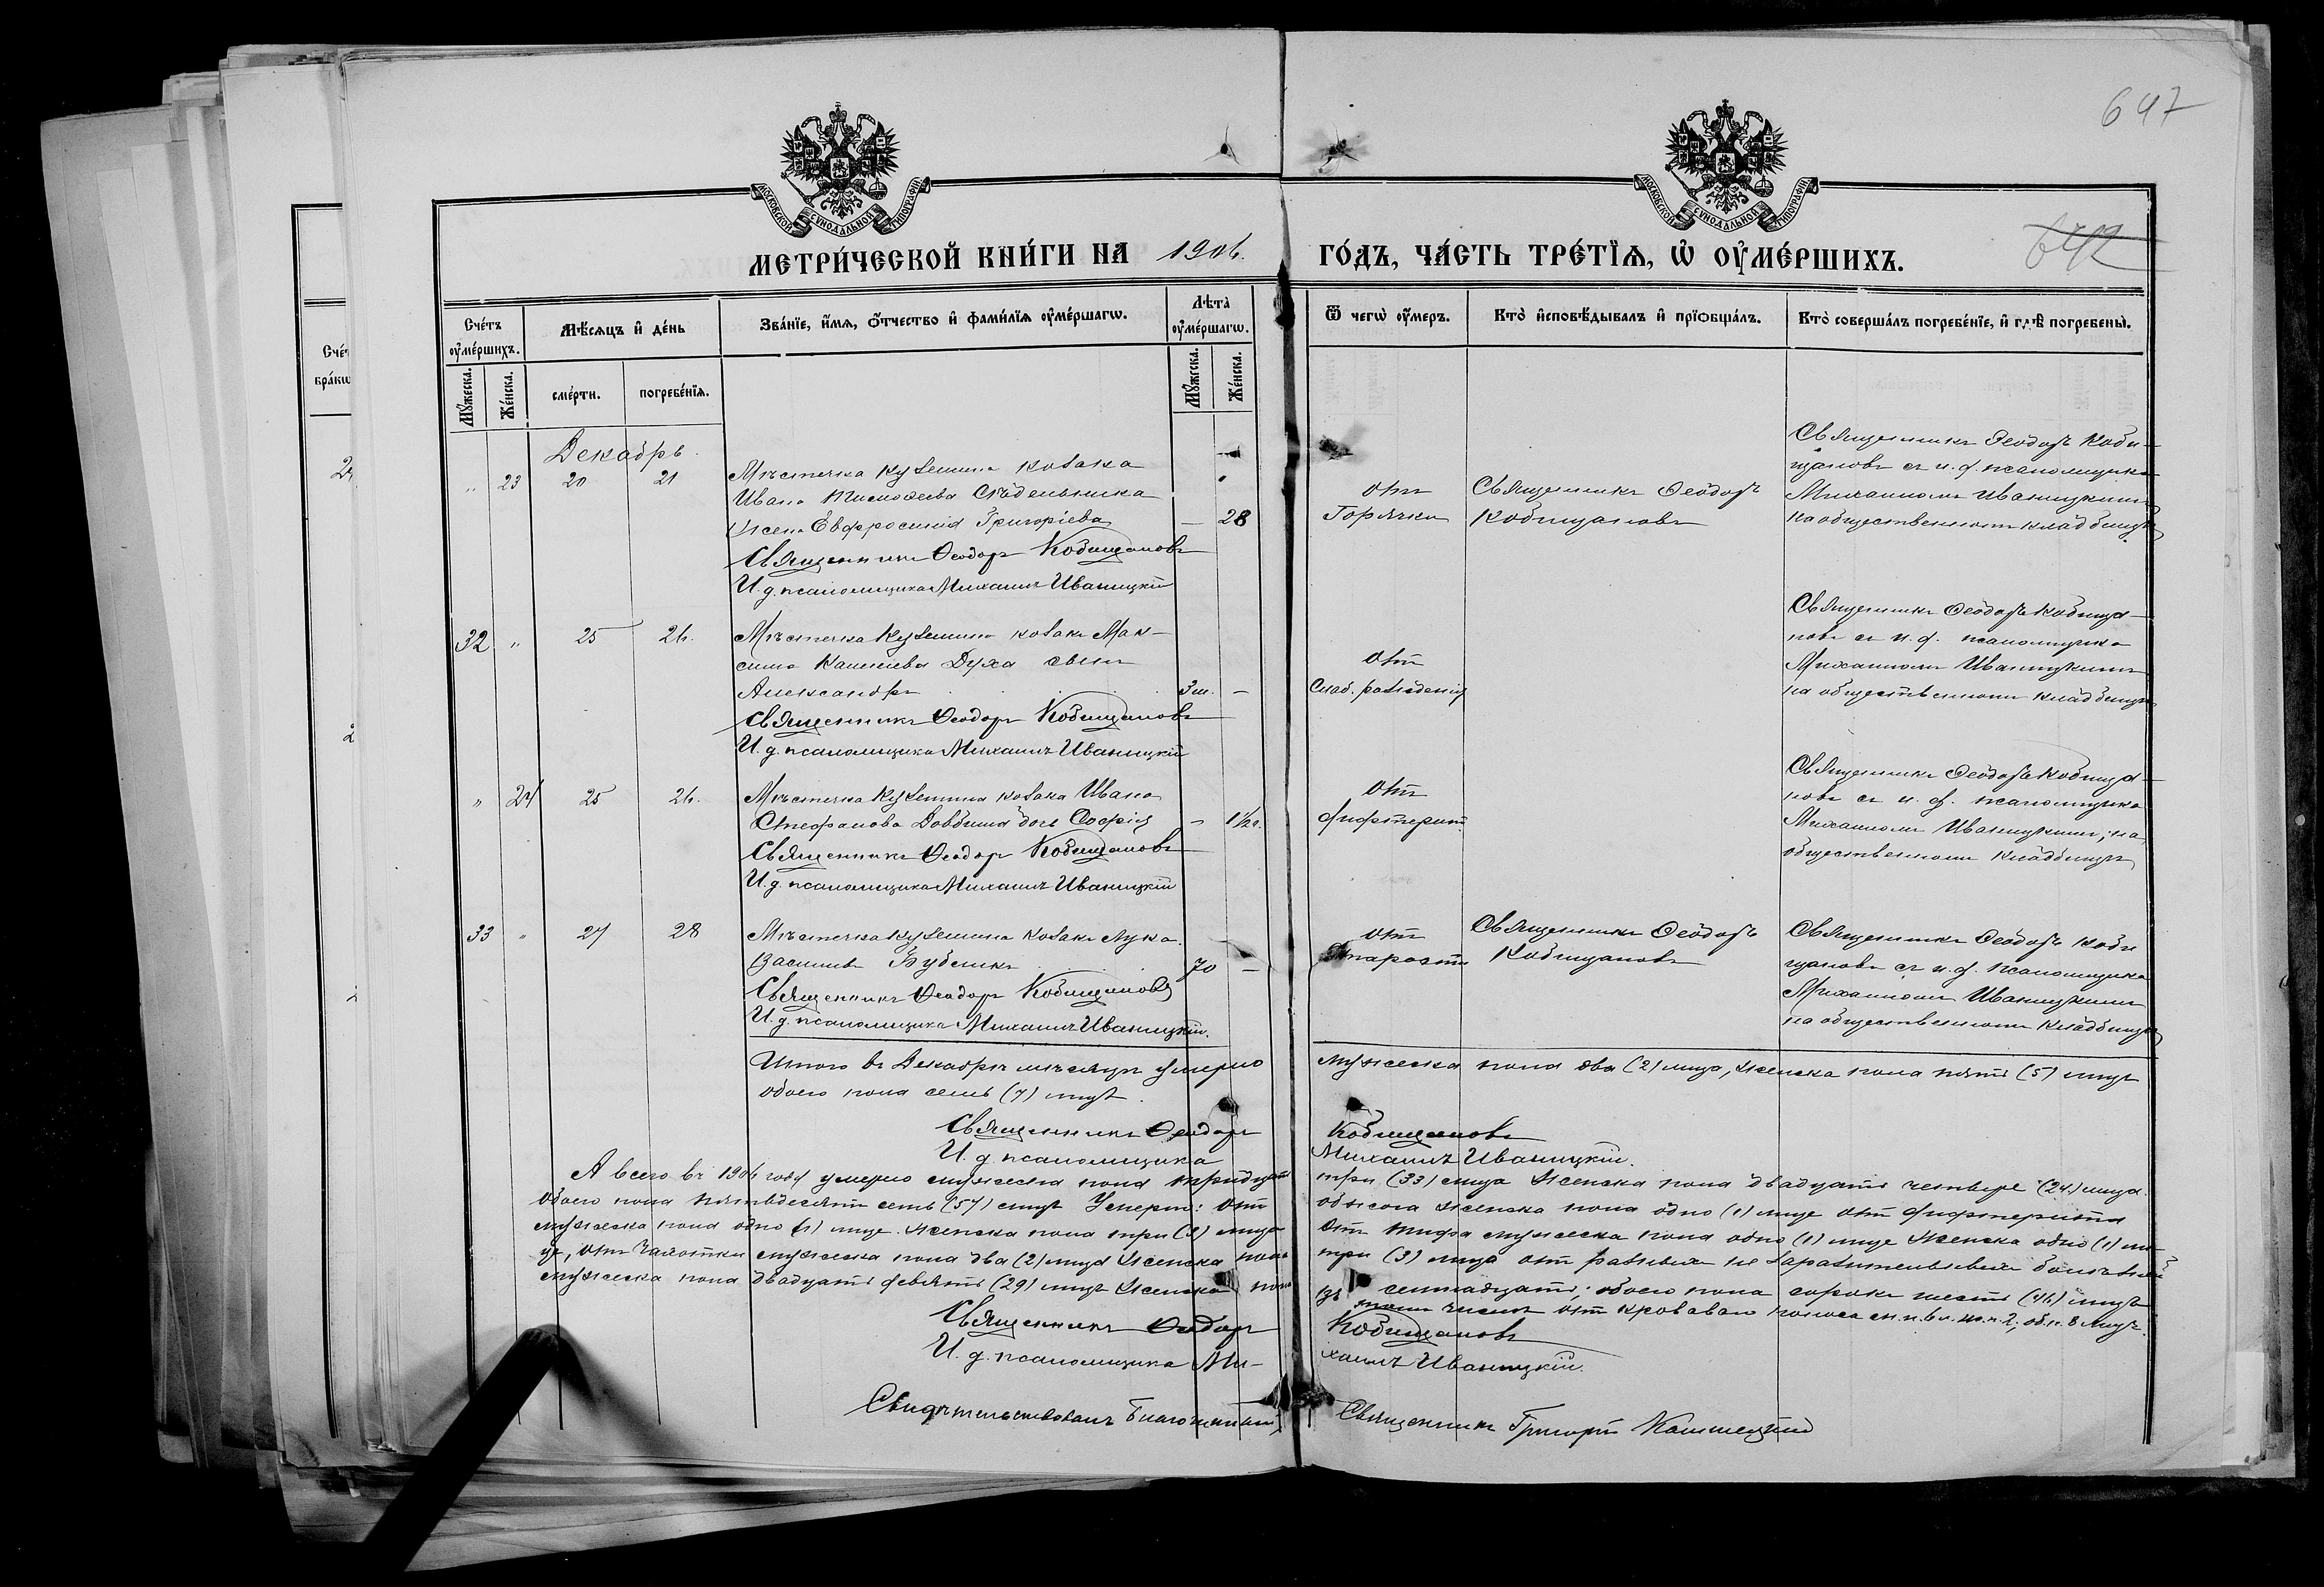 647
МОСКОВСКОЙ СѴНОДАЛЬНОЙ ТИПОГРАФІИ
МОСКОВСКОЙ СѴНОДАЛЬНОЙ ТИПОГРАФІИ
МЕТРИ́ЧЕСКОЙ КНИ́ГИ НА 1906. ГО́ДЪ, ЧА́СТЬ ТРЕ́ТЇѦ, Ѡ҆ ОУ҆МЕ́РШИХЪ.
642
Сче́тъ оу҆ме́ршихъ.
Мꙋ́жеска.
Же́нска.
Мѣ́сѧцъ и҆ де́нь
сме́рти.
погребе́нїѧ.
Зва́нїе, и҆́мѧ, ѻ҆́тчество и҆ фами́лїѧ оу҆ме́ршагѡ.
Лѣ̀та оу҆ме́ршагѡ.
Мꙋ́жеска.
Же́нска.
Ѿ чегѡ̀ оу҆́меръ.
Кто̀ и҆сповѣ́дывалъ и҆ прїѡбща́лъ.
Кто̀ соверша́лъ погребе́нїе, и҆ гдѣ̀ погребены̀.
Сче́т
бра́кѡ
Декабрь
" 23 20 21
Мѣстечка Куземина козака
Ивана Тимоѳеева Слѣденьника
жена Евфросинія Григоріева — 28
Священникъ Ѳеодоръ Кобищановъ
И. д. псаломщика Михаилъ Иваницкій
отъ
Горячки
Священникъ Ѳеодоръ
Кобищановъ
Священникъ Ѳеодоръ Коби-
щановъ съ и. д. псаломщика
Михаиломъ Иваницкимъ
на общественномъ кладбищѣ
32 " 25 26.
Мѣстечка Куземина козака Мак-
сима Каленева Духа сынъ
Александръ 3 м. —
Священникъ Ѳеодоръ Кобищановъ
И. д. псаломщика Михаилъ Иваницкій
отъ
Слаб. рожденія
Священникъ Ѳеодоръ Кобища-
новъ съ и. д. псаломщика
Михаиломъ Иваницкимъ
на общественномъ кладбищѣ
" 24 25 26.
Мѣстечка Куземина козака Ивана
Стефанова Довбиша дочь Софія — 1½ г.
Священникъ Ѳеодоръ Кобищановъ
И. д. псаломщика Михаилъ Иваницкій
отъ
дифтерит.
Священникъ Ѳеодоръ Кобища-
новъ съ и. д. псаломщика
Михаиломъ Иваницкимъ, на
общественномъ кладбищѣ
33 " 27 28
Мѣстечка Куземина козакъ Лука
Васильевъ Бубликъ 70 —
Священникъ Ѳеодоръ Кобищановъ
И. д. псаломщика Михаилъ Иваницкій.
отъ
Старости
Священникъ Ѳеодоръ
Кобищановъ
Священникъ Ѳеодоръ Коби
щановъ съ и. д. псаломщика
Михаиломъ Иваницкимъ
на общественномъ кладбищѣ
Итого въ Декабрѣ мѣсяцѣ умерло мужеска пола два (2) лица, женска пола пять (5) лицъ
обоего пола семь (7) лицъ.
Священникъ Ѳеодоръ Кобищановъ
И. д. псаломщика Михаилъ Иваницкій.
А всего въ 1906 году умерло мужеска пола тридцать три (33) лица женска пола двадцать четыре (24) лица.
обоего пола пятьдесятъ семь (57) лицъ Умерли: отъ обжога женска пола одно (1) лице отъ дифтерита
мужеска пола одно (1) лице. женска пола три (3) лица отъ тифа мужеска пола одно (1) лице женска одно (1) ли-
це, отъ чахотки мужеска пола два (2) лица женска пола три (3) лица отъ разныхъ не заразительныхъ болѣзней
мужеска пола двадцать девять (29) лицъ женска пола семнадцать; обоего пола сорокъ шесть (46) лицъ
въ томъ числѣ отъ кроваваго поноса м. п. 6 л. ж. п. 2, об. п. 8 лицъ.
Священникъ Ѳеодоръ Кобищановъ
И. д. псаломщика Ми-хаилъ Иваницкій.
Свидѣтельствовалъ Благочинный, Священникъ Григорій